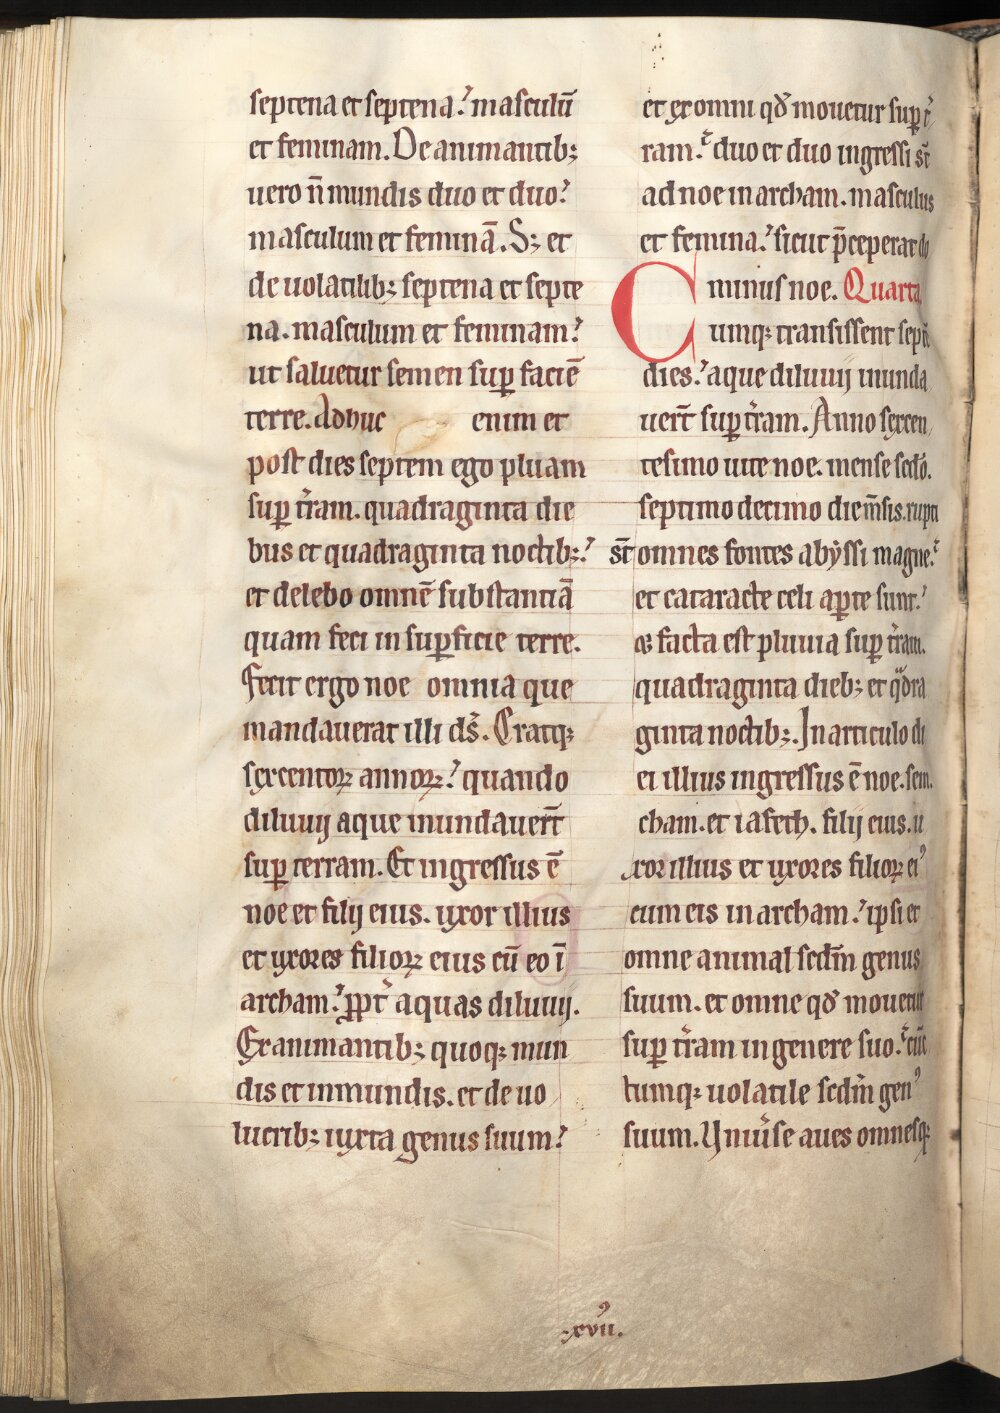 septena et septena? masculū
et feminam. De animantib;
uero ñ mundis duo et duo?
masculum et feminā. S; et
de uolatilib; septena et septe
na. masculum et feminam?
ut saluetur semen suꝑ faciē
terre. Adhuc enim et
post dies septem ego pluam
suꝑ t̄ram. quadraginta die
bus et quadraginta noctib;?
et delebo omnē substantiā
quam feci in suꝑficie terre.
Fecit ergo noe omnia que
mandauerat illi ds̄. Eratq;
sexcentoꝝ annoꝝ? quando
diluuij aque inundauer̄t
suꝑ terram. Et ingressus ē
noe et filij eius. uxor illius
et uxores filioꝝ eius cū eo ī
archam? ꝓpt̄ aquas diluuij.
Ex animantib; quoq; mun
dis et inmundis. et de uo
lucrib; iuxta genus suum?
et ex omni qđ mouetur suꝑ t̄
ram? duo et duo ingressi st̄
ad noe in archam. masculus
et femina? sicut p̄ceperat do
minus noe. Quarta
Cumq; transissent septē
dies? aque diluuij inunda
uer̄t suꝑ t̄ram. Anno sexcen
tesimo uite noe. mense scđo.
septimo decimo die m̄sis. rupti
st̄ omnes fontes abyssi magne?
et cataracte celi aꝑte sunt?
⁊ facta est pluuia suꝑ t̄ram.
quadraginta dieb; et qᵃdra
ginta noctib;. In articulo di
ei illius ingressus ē noe. sem.
cham. et iafeth. filij eius. u
xor illius et uxores filioꝝ eiꝰ
cum eis in archam? ipsi et
omne animal scđm genus
suum. et omne qđ mouetur
suꝑ t̄ram in genere suo? cūc
tumq; uolatile scđm genꝰ
suum. Vniūse aues omnesq;
.xvijꝰ.